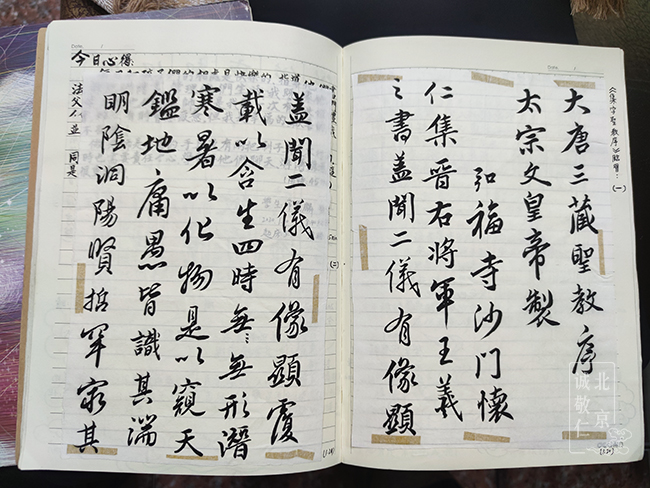 《集字聖教序》臨習：(一)
大唐三藏聖教序
太宗文皇帝製
弘福寺沙門懷
仁集晉右將軍王羲
之書蓋聞二儀有像顯
今日心得:
(二)
蓋聞二儀有像顯覆
載以含生四時無無形潛
寒暑以化物是以窺天
鑑地庸愚皆識其湍
明陰洞陽賢哲罕窮其
法父
同是
北京
诚敬仁